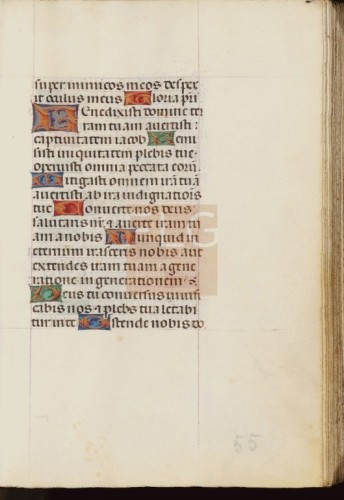 super inimicos meos despex
it oculus meus Gloria pri
Benedixisti domine ter
ram tuam avertisti :
captivitatem iacob Remi
sisti iniquitatem plebis tue
operuisti omnia peccata eorū
Mitigasti omnem irā tuā
avertisti ab ira indignationis
tue Converte nos deus
salutaris nr̄ & averte iram tu
am a nobis Nunquid in
eternum irasceris nobis aut
extendes iram tuam a gene
ratione in generationem
Deus tu conversus vivifi
cabis nos & plebs tua letabi
tur in te Ostende nobis do
55